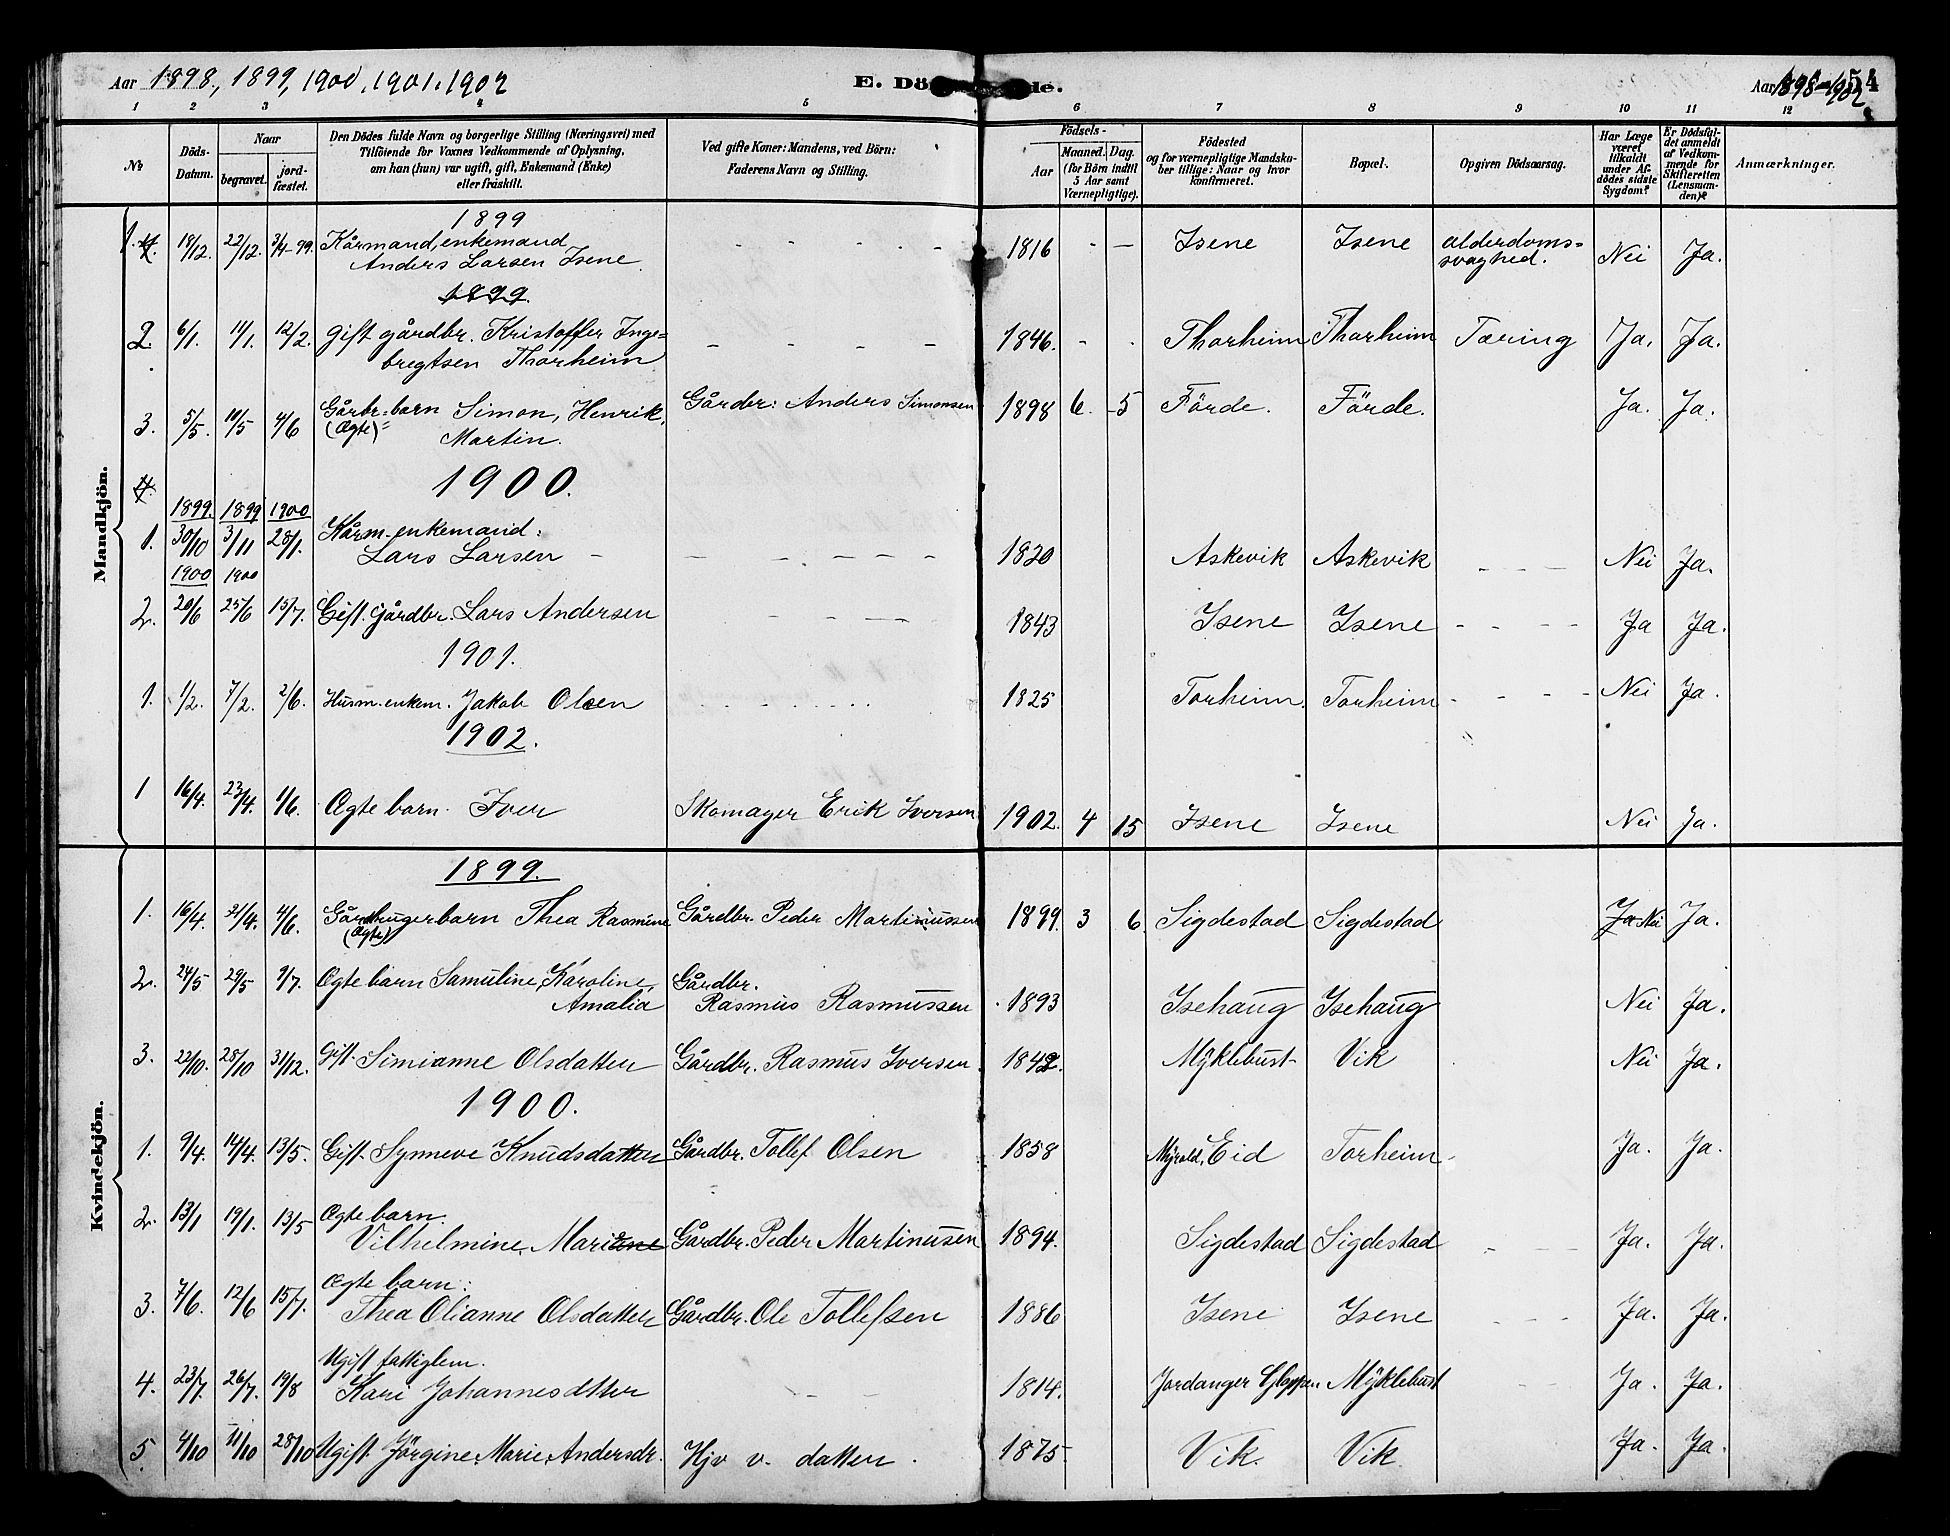 Aar 1898, 1899, 1900, 1901. 1902 E. Dö de. Aar 1898-1902 54
1 2 3 4 5 6 7 8 9 10 11 12
№
Döds-Datum.
Naar
begravet. jord-fæstet.
Den Dödes fulde Navn og borgerlige Stilling (Næringsvei) med
Tilföiende for Voxnes Vedkommende af Oplysning,
om han (hun) var ugift, gift, Enkemand (Enke)
eller fraskilt.
Ved gifte Koner: Mandens, ved Börn:
Faderens Navn og Stilling.
Födsels-
Aar
Maaned. Dag.
(for Börn indtil
5 Aar samt
Værnepligtige).
Födested
og for værnepligtige Mandska-
ber tillige: Naar og hvor
konfirmeret.
Bopæl.
Opgiven Dödsaarsag.
Har Læge
været
tilkaldt
under Af-
dödes sidste
Sygdom?
Er Dödsfal-
det anmeldt
af Vedkom-
mende for
Skifteretten
(Lensman-
den)?
Anmærkninger.
Mandkjön.
1899
1. 4. 18/12. 22/12. 3/4-99. Kårmand, enkemand - - - - 1816 - - Isene Isene alderdoms=
Anders Larsen Isene. svaghed. Nei Ja.
1899.
2. 6/1. 11/1. 12/2. Gift gårdbr. Kristoffer Inge= - - - - 1846. - - Thorheim Thorheim Tæring Ja. Ja.
bregtsen Thorheim
3. 5/5. 10/5 4/6 Gårbr=barn Simon, Henrik, Gårdbr: Anders Simonsen 1898 6. 5 Förde. Förde. Ja. Ja.
(Ægte) Martin.
4. 1900.
1899. 1899 1900
1. 30/10 3/11 28/1. Kårm.enkemand:
Lars Larsen - - - - - 1820 Askevik Askevik - - - Nei Ja.
1900 1900
2. 20/6 25/6 15/7. Gift. Gårdbr. Lars Andersen - - - - 1843 Isene Isene - - - - Ja Ja.
1901.
1. 1/2. 7/2. 2/6. Husm.enkem. Jakob Olsen - - - - - - 1825 Torheim. Torheim - - - - Nei Ja.
1902.
1 16/4. 23/4. 1/6. Ægte barn. Iver Skomager Erik Iversen 1902. 4 15 Isene Isene Nei Ja.
Kvindekjön.
1899.
1. 16/4. 21/4. 4/6. Gårdbrugerbarn Thea Rasmine Gårdbr. Peder Martinussen 1899. 3 6. Sigdestad Sigdestad Ja Nei Ja.
(Ægte)
2. 24/5 29/5 9/7. Ægte barn Samuline, Karoline, Gårdbr.
Amalia Rasmus Rasmussen 1893 Isehaug Isehaug Nei Ja.
3. 22/10. 28/10 31/12. Gift. Simianne Olsdatter Gårdbr. Rasmus Iversen. 1842. Myklebust Vik Nei Ja.
1900.
1. 9/4. 14/4. 13/5. Gift. Synneve Knudsdatter Gårdbr. Tollef Olsen 1858 Eid Torheim Ja. Ja.
2. 13/1 19/1. 13/5 Ægte barn.
Vilhelmine, Mariane Gårdbr. Peder Martinusen 1894. Sigdestad Sigdestad - - Ja. Ja.
3. 7/6. 12/6 15/7. Ægte barn:
Thea Olianne Olsdatter Gårdbr. Ole Tollefsen 1886 Isene Isene - - - Ja. Ja.
4. 23/7. 26/7. 19/8 Ugift fattiglem.
Kari Johannesdtter - - 1814. Jordanger Gloppen Myklebust - - Ja. Ja.
5. 4/10 11/10 28/10 Ugift. Jörgine, Marie, Andersdr. Hjv v. datter. 1875. Vik. Vik. Ja. Ja.